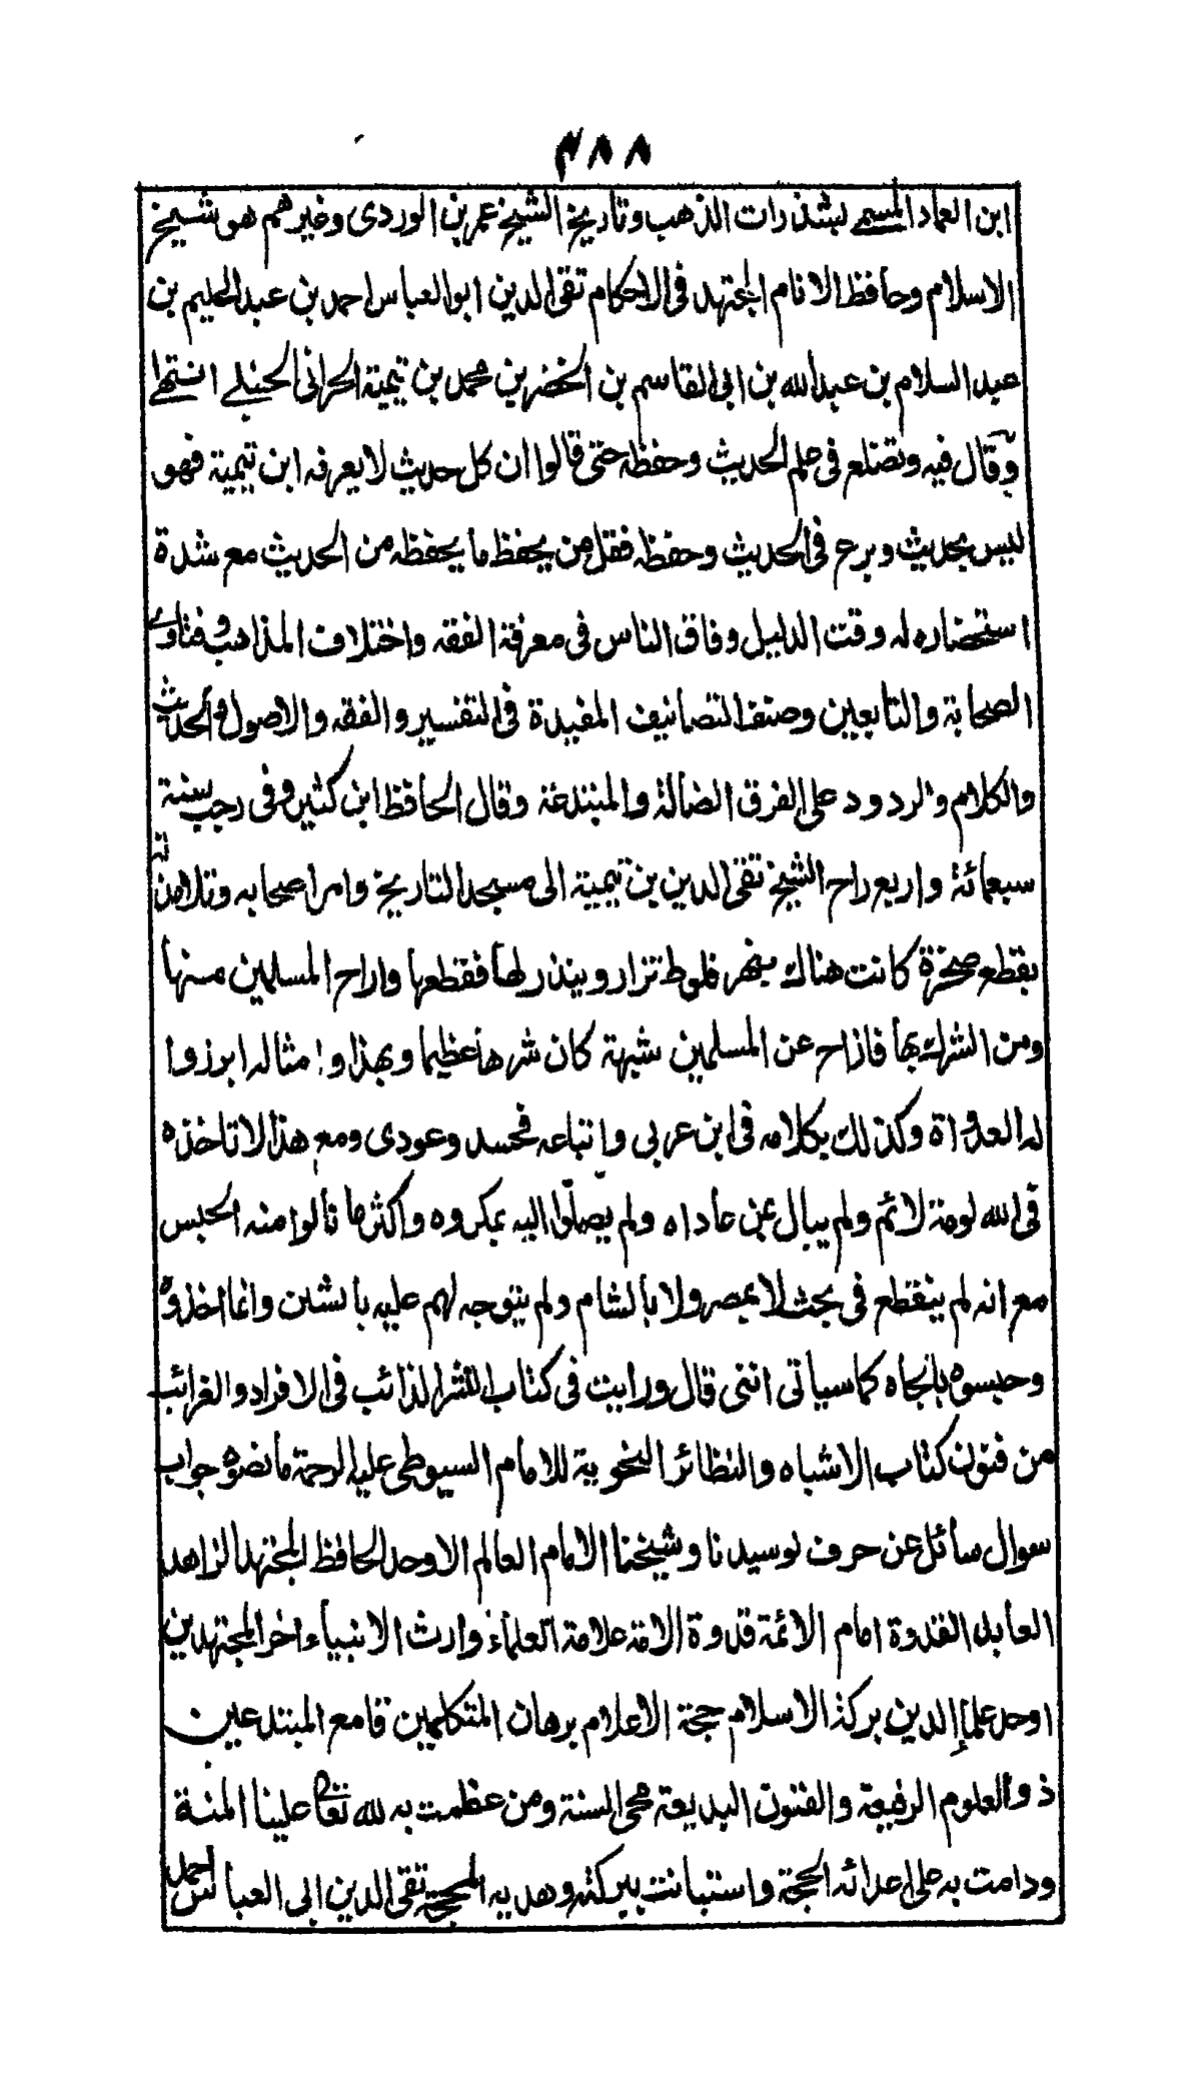 ٤٨٨
ابن العماد المسمے بشذرات الذهب وتاريخ الشيخ عمر بن الوردى وغيرهم هو شيخ
الاسلام وحافظ الانام المجتهد فى الاحكام تقى الدين ابو العباس احمد بن عبد الحليم بن
عبد السلام بن عبد الله بن ابى القاسم بن الخضر بن محمد بن تيمية الحرانى الحنبلے انتهے
وقال فيه وتضلع فى علم الحديث وحفظه حتى قالوا ان كل حديث لا يعرفه ابن تيمية فهو
ليس بحديث وبرع فى الحديث وحفظه فقل من يحفظ ما يحفظه من الحديث مع شدة
استحضاره له وقت الدليل وفاق الناس فى معرفة الفقه واختلاف المذاهب وفتاوے
الصحابة والتابعين وصنف التصانيف المفيدة فى التفسير والفقه والاصول والحديث
والكلام والردود على الفرق الضالة والمبتدعة وقال الحافظ ابن كثير وفى رجب سنة
سبعمائة واربع راح الشيخ تقى الدين بن تيمية الى مسجد التاريخ وامر اصحابه وتلامذته
بقطع صخرة كانت هناك بنهر قلوط تزار وينذر لها فقطعها واراح المسلمين منها
ومن الشرك بها فازاح عن المسلمين شبهة كان شرها عظيما وبهذا وامثاله ابرزوا
له العداوة وكذلك بكلامه فى ابن عربى واتباعه فحسد وعودى ومع هذا لا تاخذه
فى الله لومة لائم ولم يبال بمن عاداه ولم يصلوا اليه بمكروه واكثر ما نالوا منه الحبس
مع انه لم ينقطع فى بحث لا بمصر ولا بالشام ولم يتوجه لهم عليه ما يشين وانما اخذوه
وحبسوه بالجاه كما سياتى انتى قال ورايت فى كتاب النثر الذائب فى الافراد والغرائب
من فنون كتاب الاشباه والنظائر النحوية للامام السيوطى عليه الرحمة ما نصوه جواب
سوال سائل عن حرف لو سيدنا وشيخنا الامام العالم الاوحد الحافظ المجتهد الزاهد
العابد القدوة امام الائمة قدوة الامة علامة العلماء وارث الانبياء اخر المجتهدين
اوحد علماء الدين بركة الاسلام حجة الاعلام برهان المتكلمين قامع المبتدعين
ذو العلوم الرفيعة والفنون البديعة محى السنة ومن عظمت به لله تعالى علينا المنة
ودامت به على اعدائه الحجة واستبانت ببركته وهديه المحجة تقى الدين ابى العباس احمد